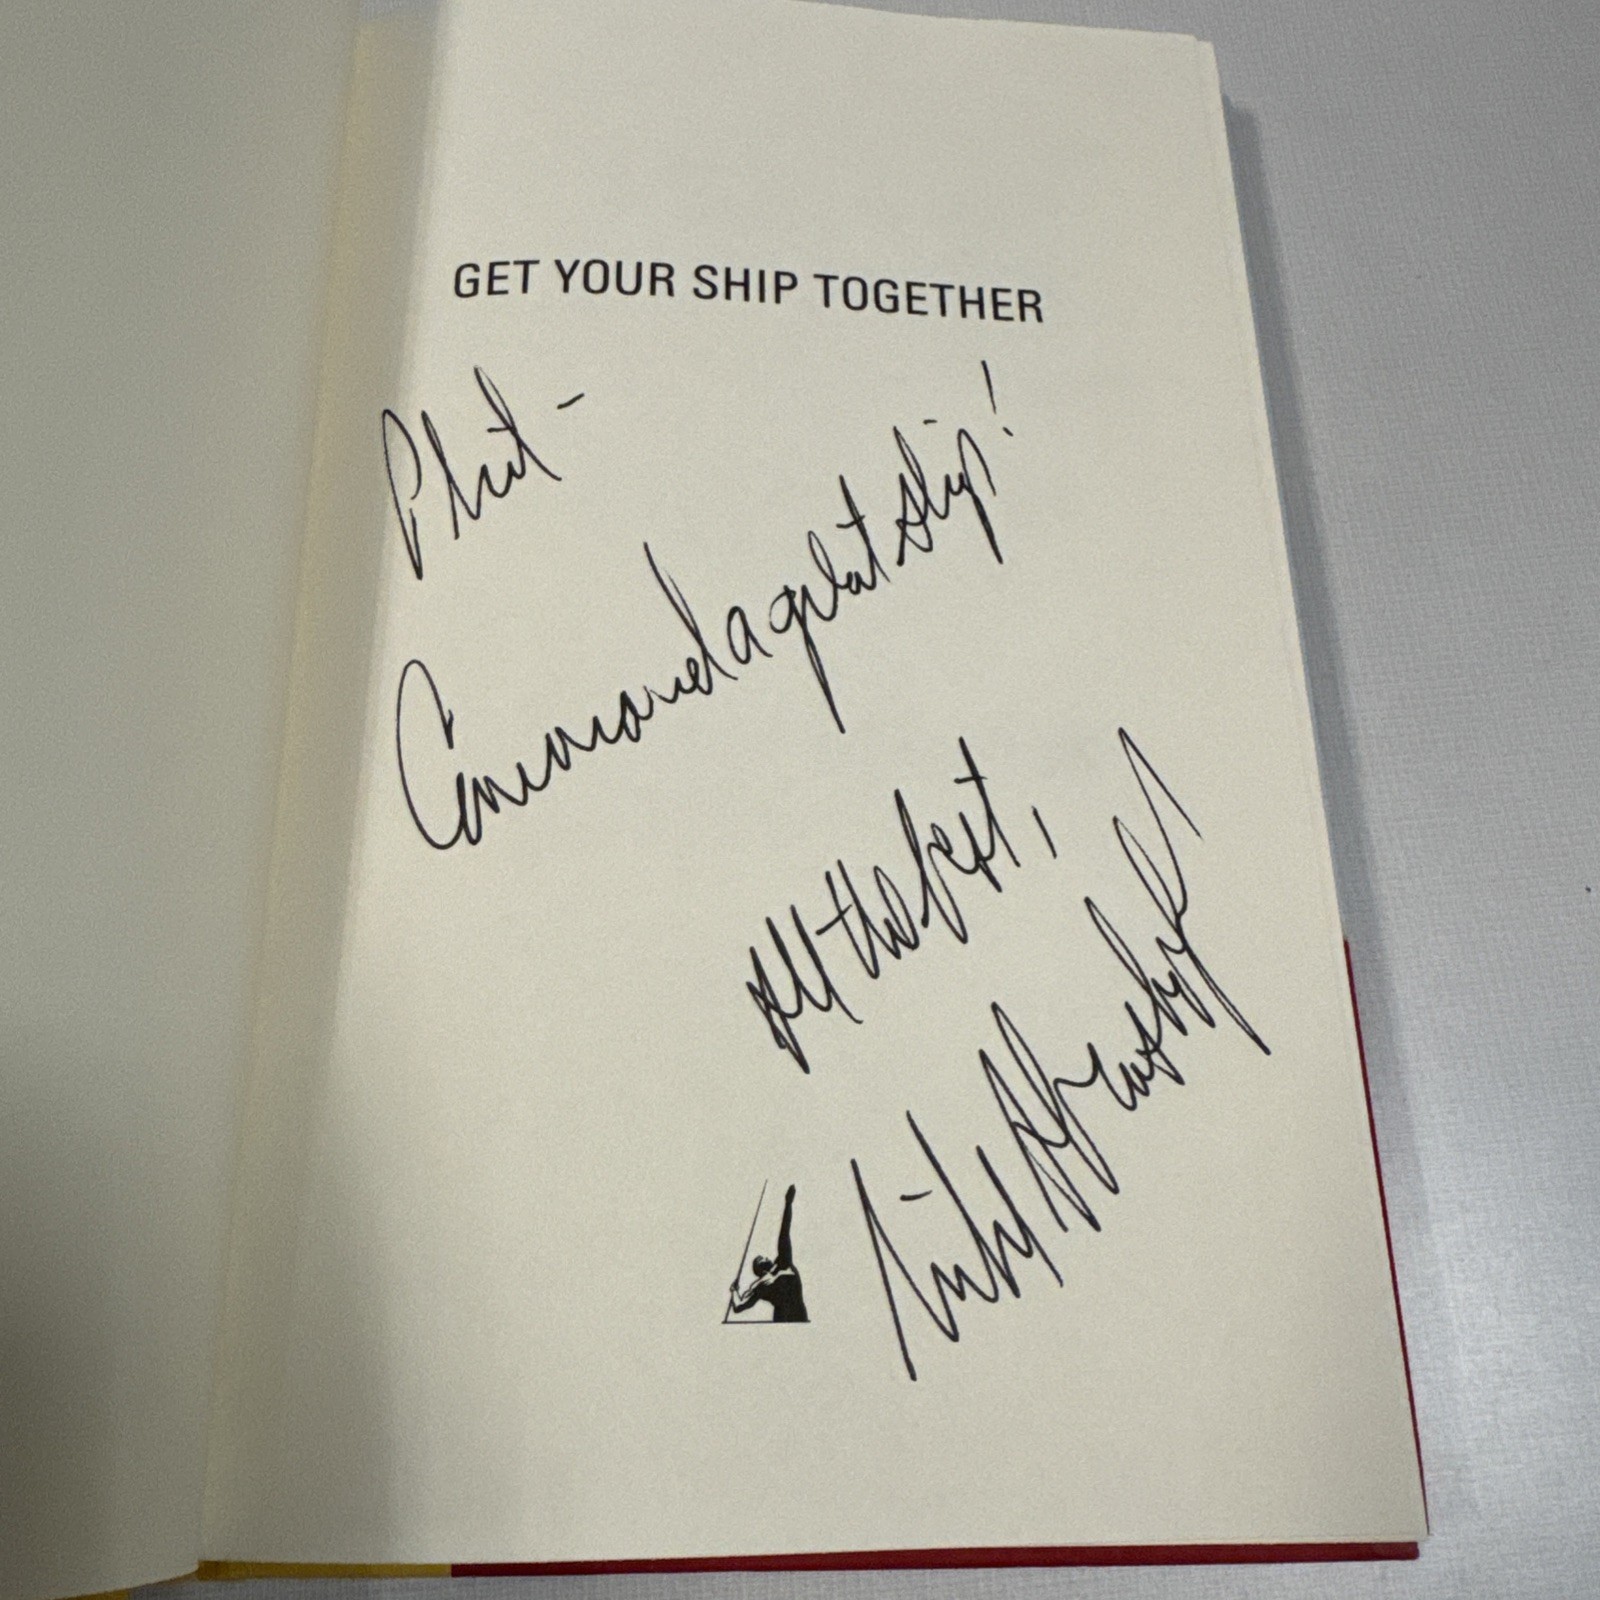 GET YOUR SHIP TOGETHER
Phil -
Command a great ship!
All the best,
Mike Abrashoff